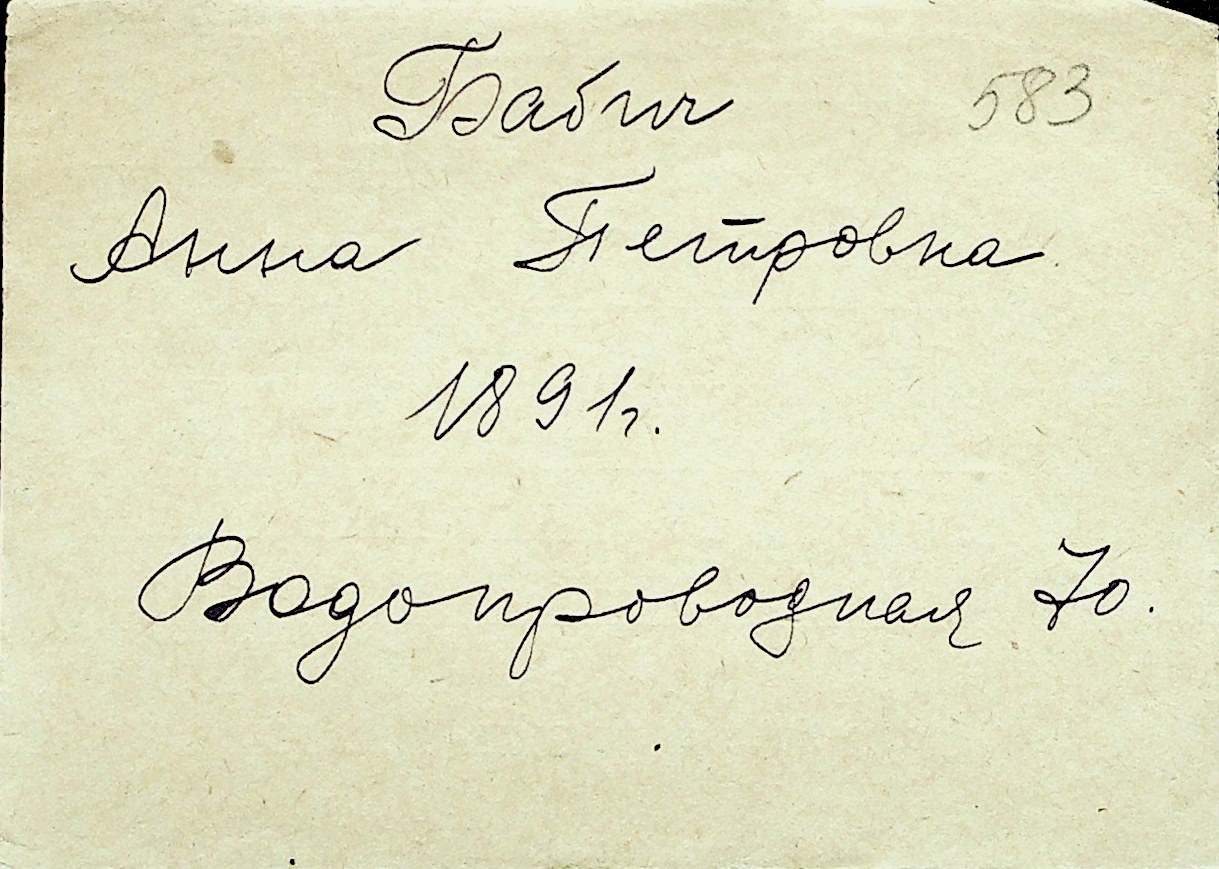 Бабич 583
Анна Петровна
1891г.
Водопроводная 70.